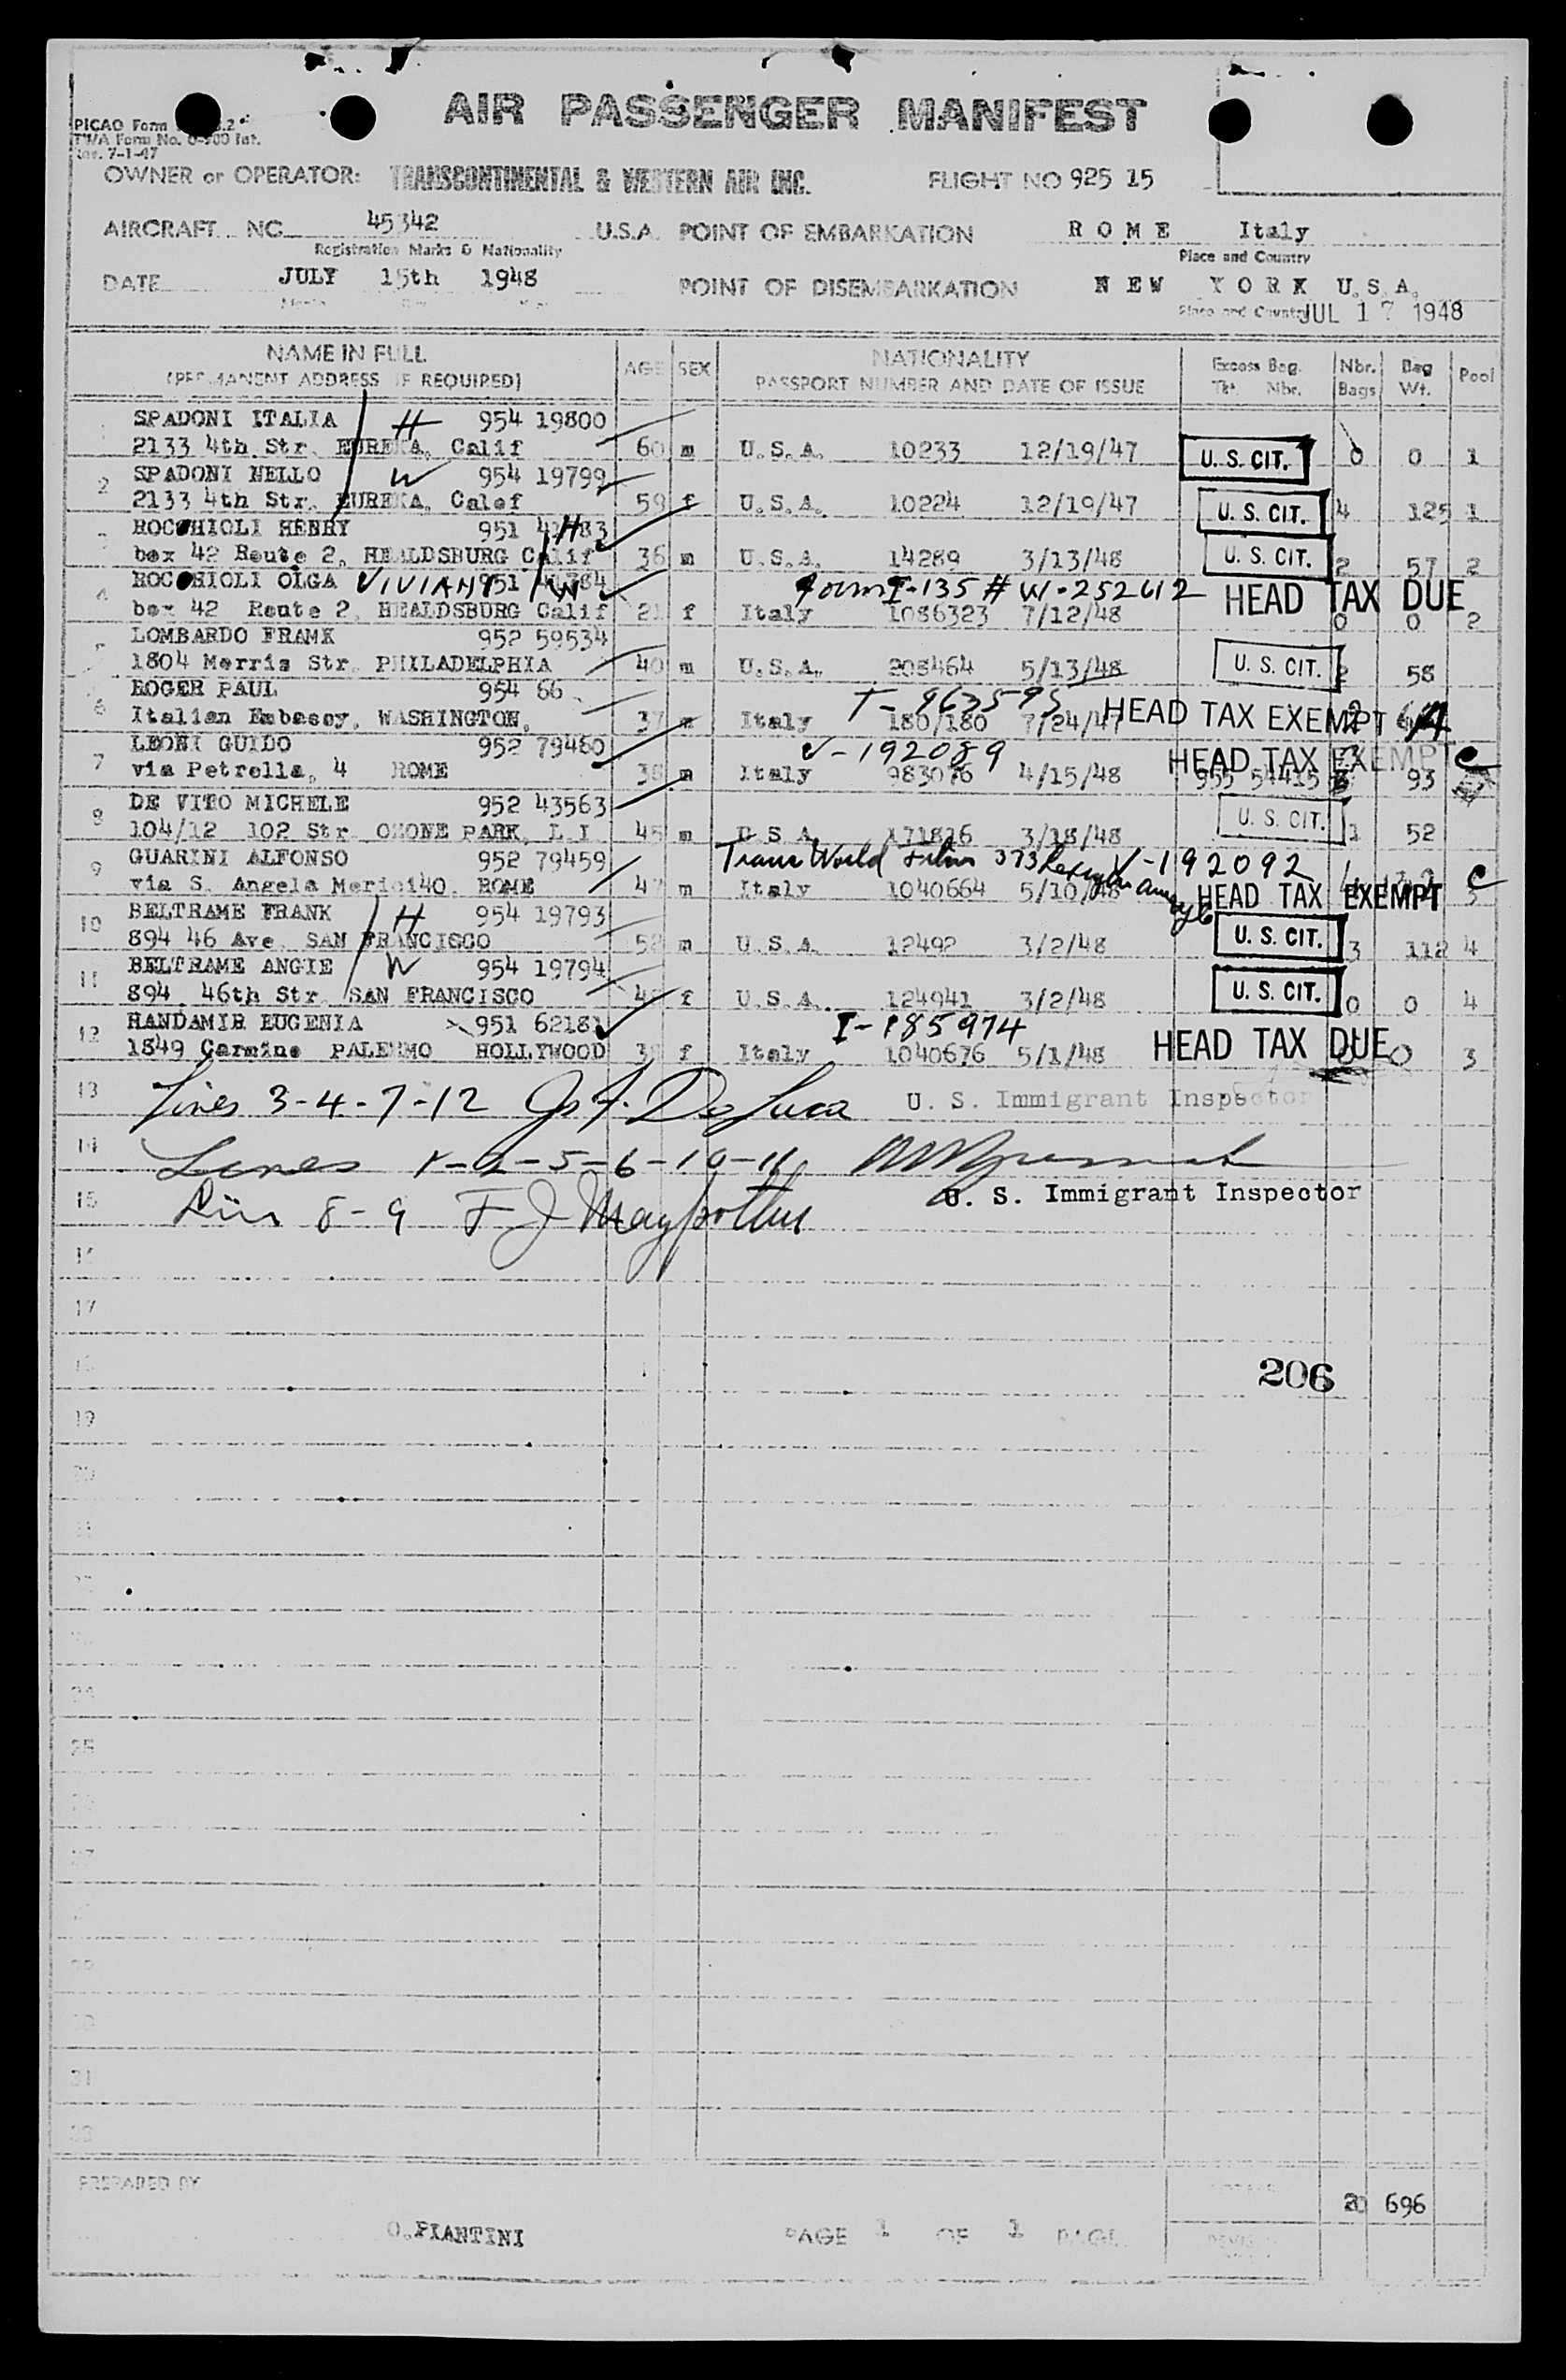 AIR PASSENGER MANIFEST
PICAO Form
TWA Form No. 0-900 Int.
Rev. 7-1-47
OWNER or OPERATOR: TRANSCONTINENTAL & WESTERN AIR INC. FLIGHT NO 925 15
AIRCRAFT NC 45342 U.S.A. POINT OF EMBARKATION R O M E Italy
Registration Marks & Nationality Place and Country
DATE JULY 15th 1948 POINT OF DISEMBARKATION N E W Y O R K U.S.A.
Place and Country JUL 17 1948
NAME IN FULL AGE SEX NATIONALITY Excess Bag. Nbr. Bag Pool
(PERMANENT ADDRESS IF REQUIRED) PASSPORT NUMBER AND DATE OF ISSUE Tkt. Nbr. Bags Wt.
SPADONI ITALIA H 954 19800
1 2133 4th Str. EUREKA, Calif 60 m U.S.A. 10233 12/19/47 U. S. CIT. 0 0 1
SPADONI NELLO W 954 19799
2 2133 4th Str. EUREKA, Calef 59 f U.S.A. 10224 12/19/47 U. S. CIT. 4 125 1
ROCCHIOLI HENRY 951 H 83
3 box 42 Route 2, HEALDSBURG Calif 36 m U.S.A. 14289 3/13/48 U. S. CIT. 2 57 2
ROCCHIOLI OLGA VIVIANI 951 W 784 Form I-135 # W-252612 HEAD TAX DUE
4 box 42 Route 2, HEALDSBURG Calif f Italy 1086323 7/12/48 0 0 2
LOMBARDO FRAMK 952 59534
5 1804 Morris Str. PHILADELPHIA 40 m U.S.A. 208464 5/13/48 U. S. CIT. 2 58
ROGER PAUL 954 66 T-963595 HEAD TAX EXEMPT
6 Italian Embassy, WASHINGTON, 37 m Italy 180/180 7/24/47 2
LEONI GUIDO 952 79460 V-192089 HEAD TAX EXEMPT C
7 via Petrella, 4 ROME 38 m Italy 983076 4/15/48 955 54415 3 93
DE VITO MICHELE 952 43563
8 104/12 102 Str. OZONE PARK, L.I. 45 m U.S.A. 171816 3/18/48 U. S. CIT. 1 52
GUARINI ALFONSO 952 79459 Trans World Films 373 Lexington Ave NYC V-192092
9 via S. Angela Merici40. ROME 47 m Italy 1040664 5/10/48 HEAD TAX EXEMPT C
BELTRAME FRANK H 954 19793
10 894 46 Ave. SAN FRANCISCO 52 m U.S.A. 12492 3/2/48 U. S. CIT. 3 112 4
BELTRAME ANGIE W 954 19794
11 894 46th Str. SAN FRANCISCO 48 f U.S.A. 124941 3/2/48 U. S. CIT. 0 0 4
HANDAMIR EUGENIA 951 62181 I-185974
12 1849 Carmine PALERMO HOLLYWOOD 38 f Italy 1040676 5/1/48 HEAD TAX DUE 0 0 3
13 Lines 3-4-7-12 Js. F. De Luca U. S. Immigrant Inspector
14 Lines 1-2-5-6-10-11
U. S. Immigrant Inspector
15 Lines 8-9 F J Maypother
16
17
18
206
19
20
21
22
23
24
25
26
27
28
29
30
31
32
PREPARED BY
20 696
O.PIANTINI PAGE 1 OF 1 PAGE